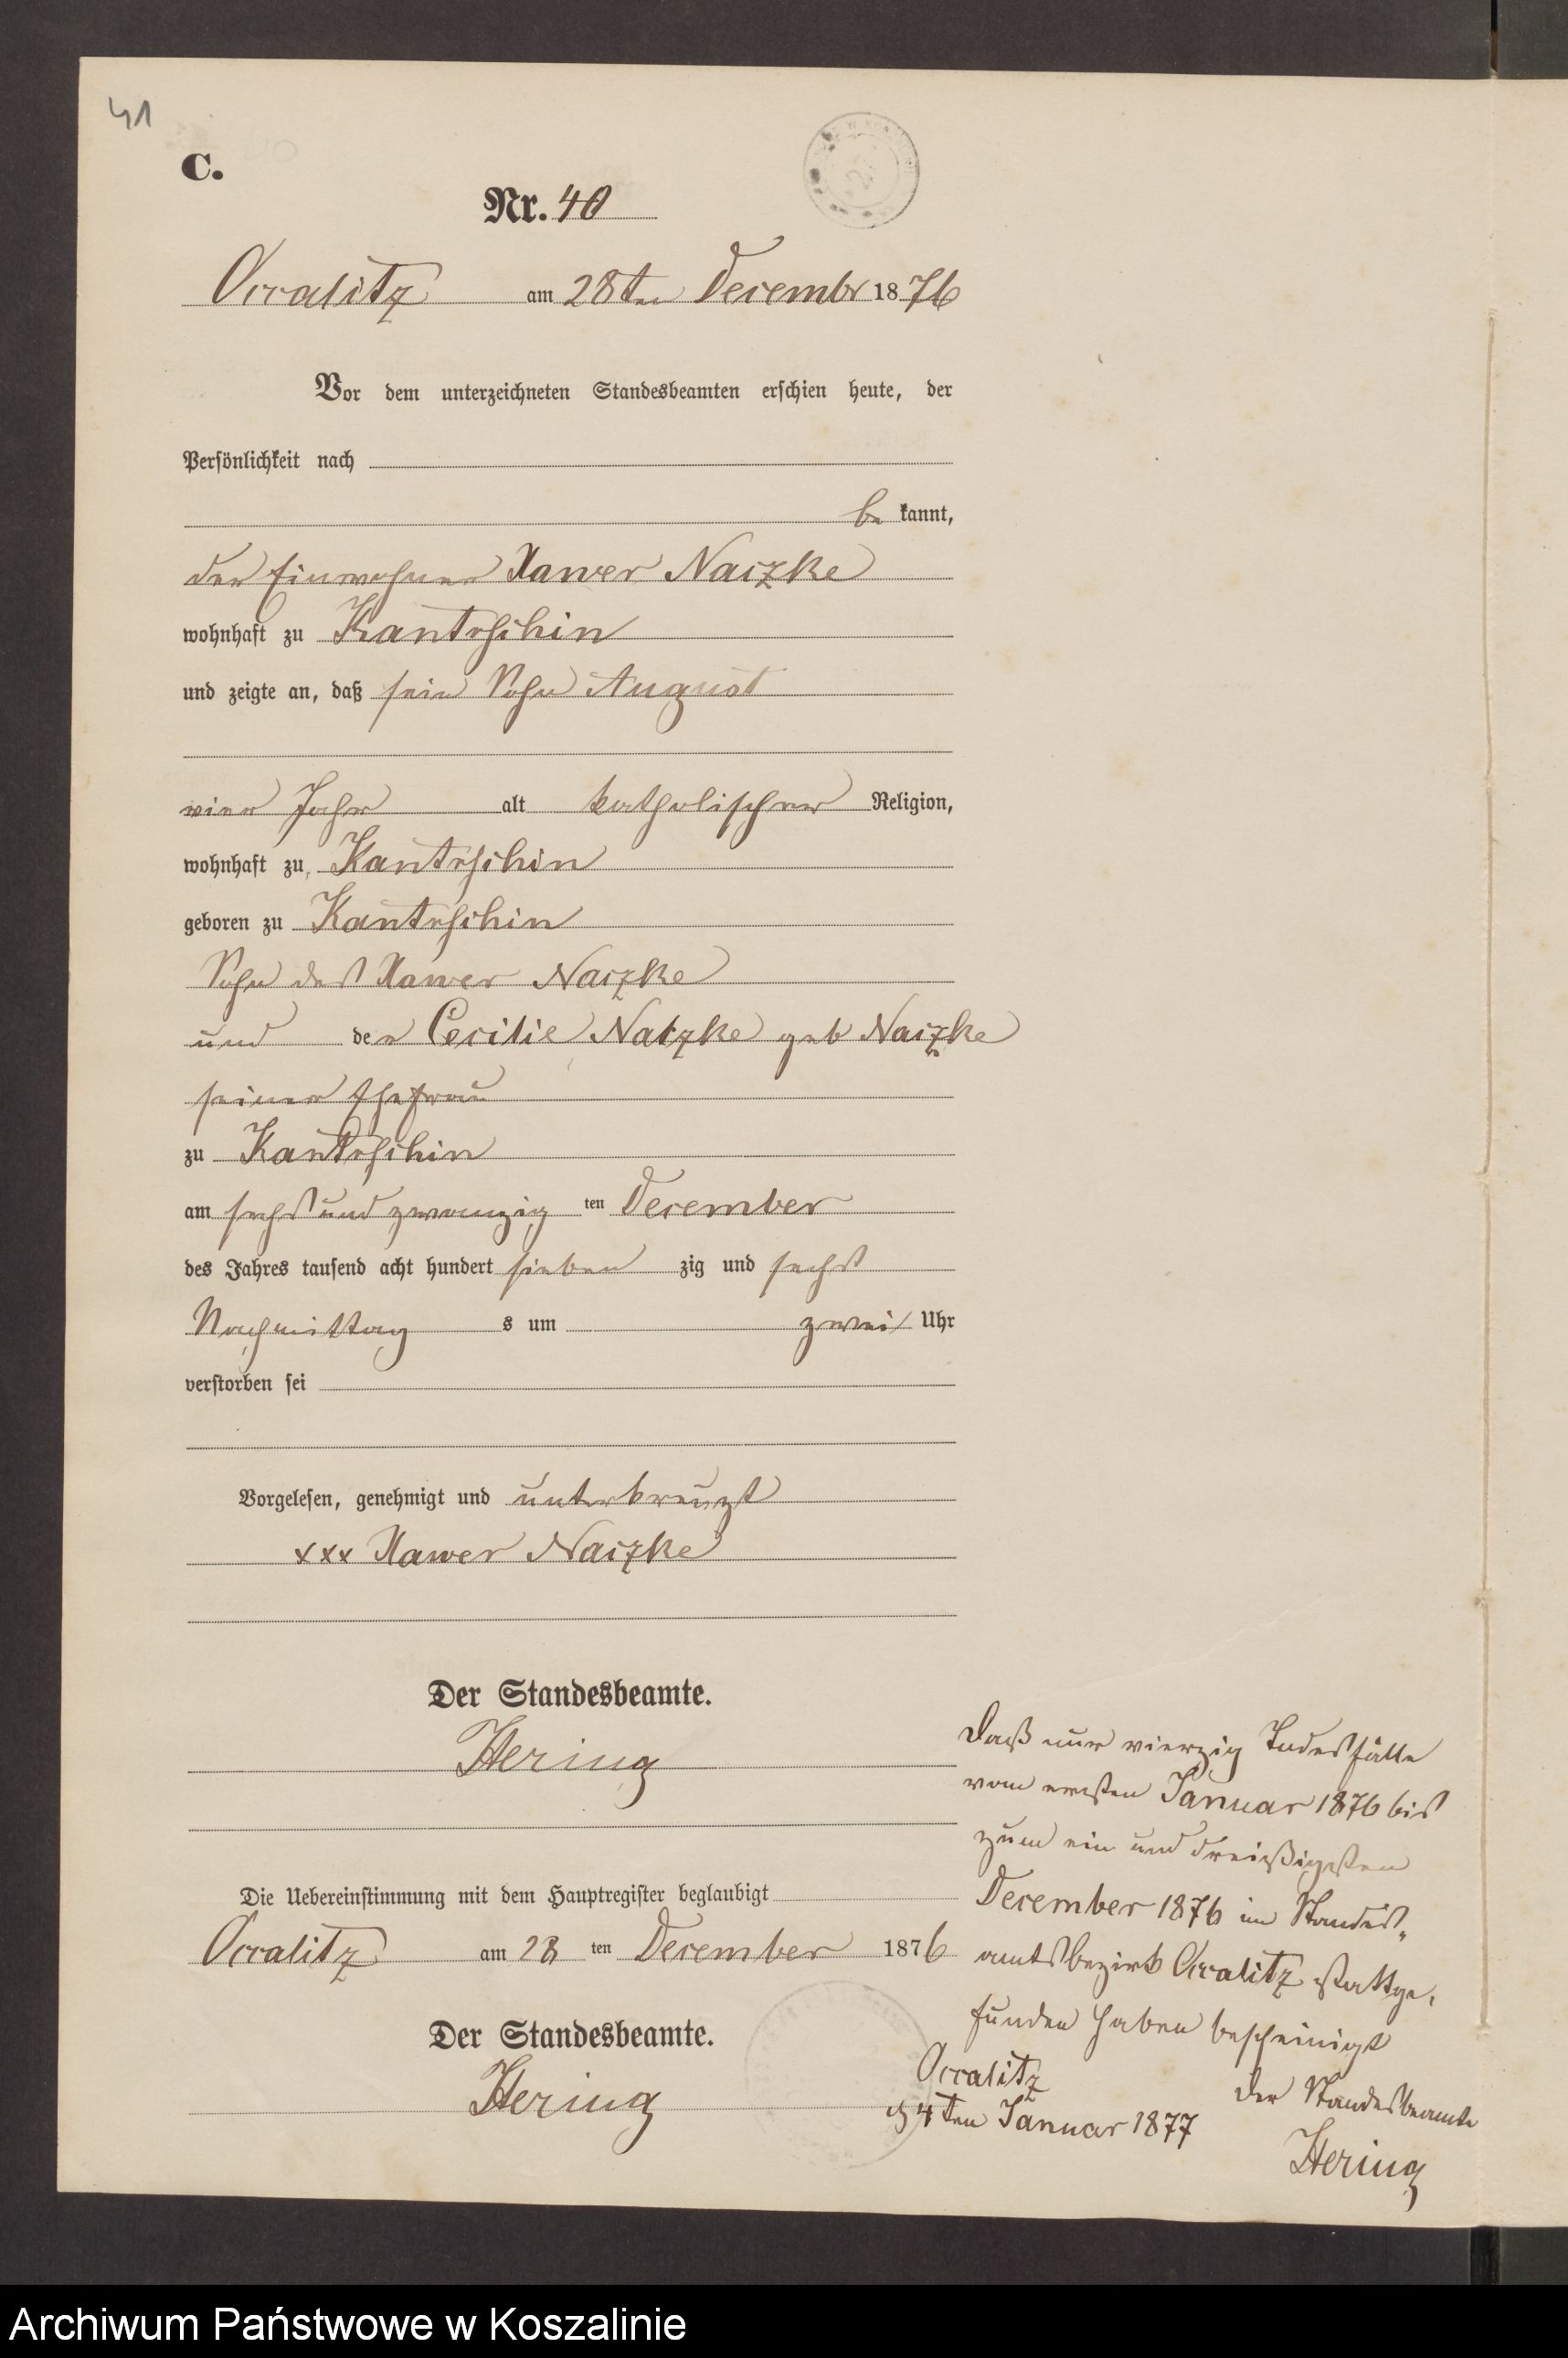 41
C.
Nr. 40
Occalitz am 28ten Decembr 1876
Vor dem unterzeichneten Standesbeamten erschien heute, der
Persönlichkeit nach
be kannt,
der Einwohner Xawer Naczke
wohnhaft zu Kantrschin
und zeigte an, daß sein Sohn August
vier Jahr alt katholischer Religion,
wohnhaft zu Kantrschin
geboren zu Kantrschin
Sohn des Xawer Naczke
und der Cecilie Natzke geb Naczke
seiner Ehefrau
zu Kantrschin
am sechs und zwanzig ten December
des Jahres tausend acht hundert sieben zig und sechs
Nachmittag s um zwei Uhr
verstorben sei
Vorgelesen, genehmigt und unterkreuzt
xxx Xawer Naczke
Der Standesbeamte.
Hering
Die Uebereinstimmung mit dem Hauptregister beglaubigt
Occalitz am 28 ten December 1876
Der Standesbeamte.
Hering
Daß nur vierzig Todesfälle
vom ersten Januar 1876 bis
zum ein und dreißigsten
December 1876 im Standes„
amtsbezirk Occalitz stattge„
funden haben bescheinigt
Occalitz
d 4ten Januar 1877
Der Standesbeamte
Hering
Archiwum Państwowe w Koszalinie